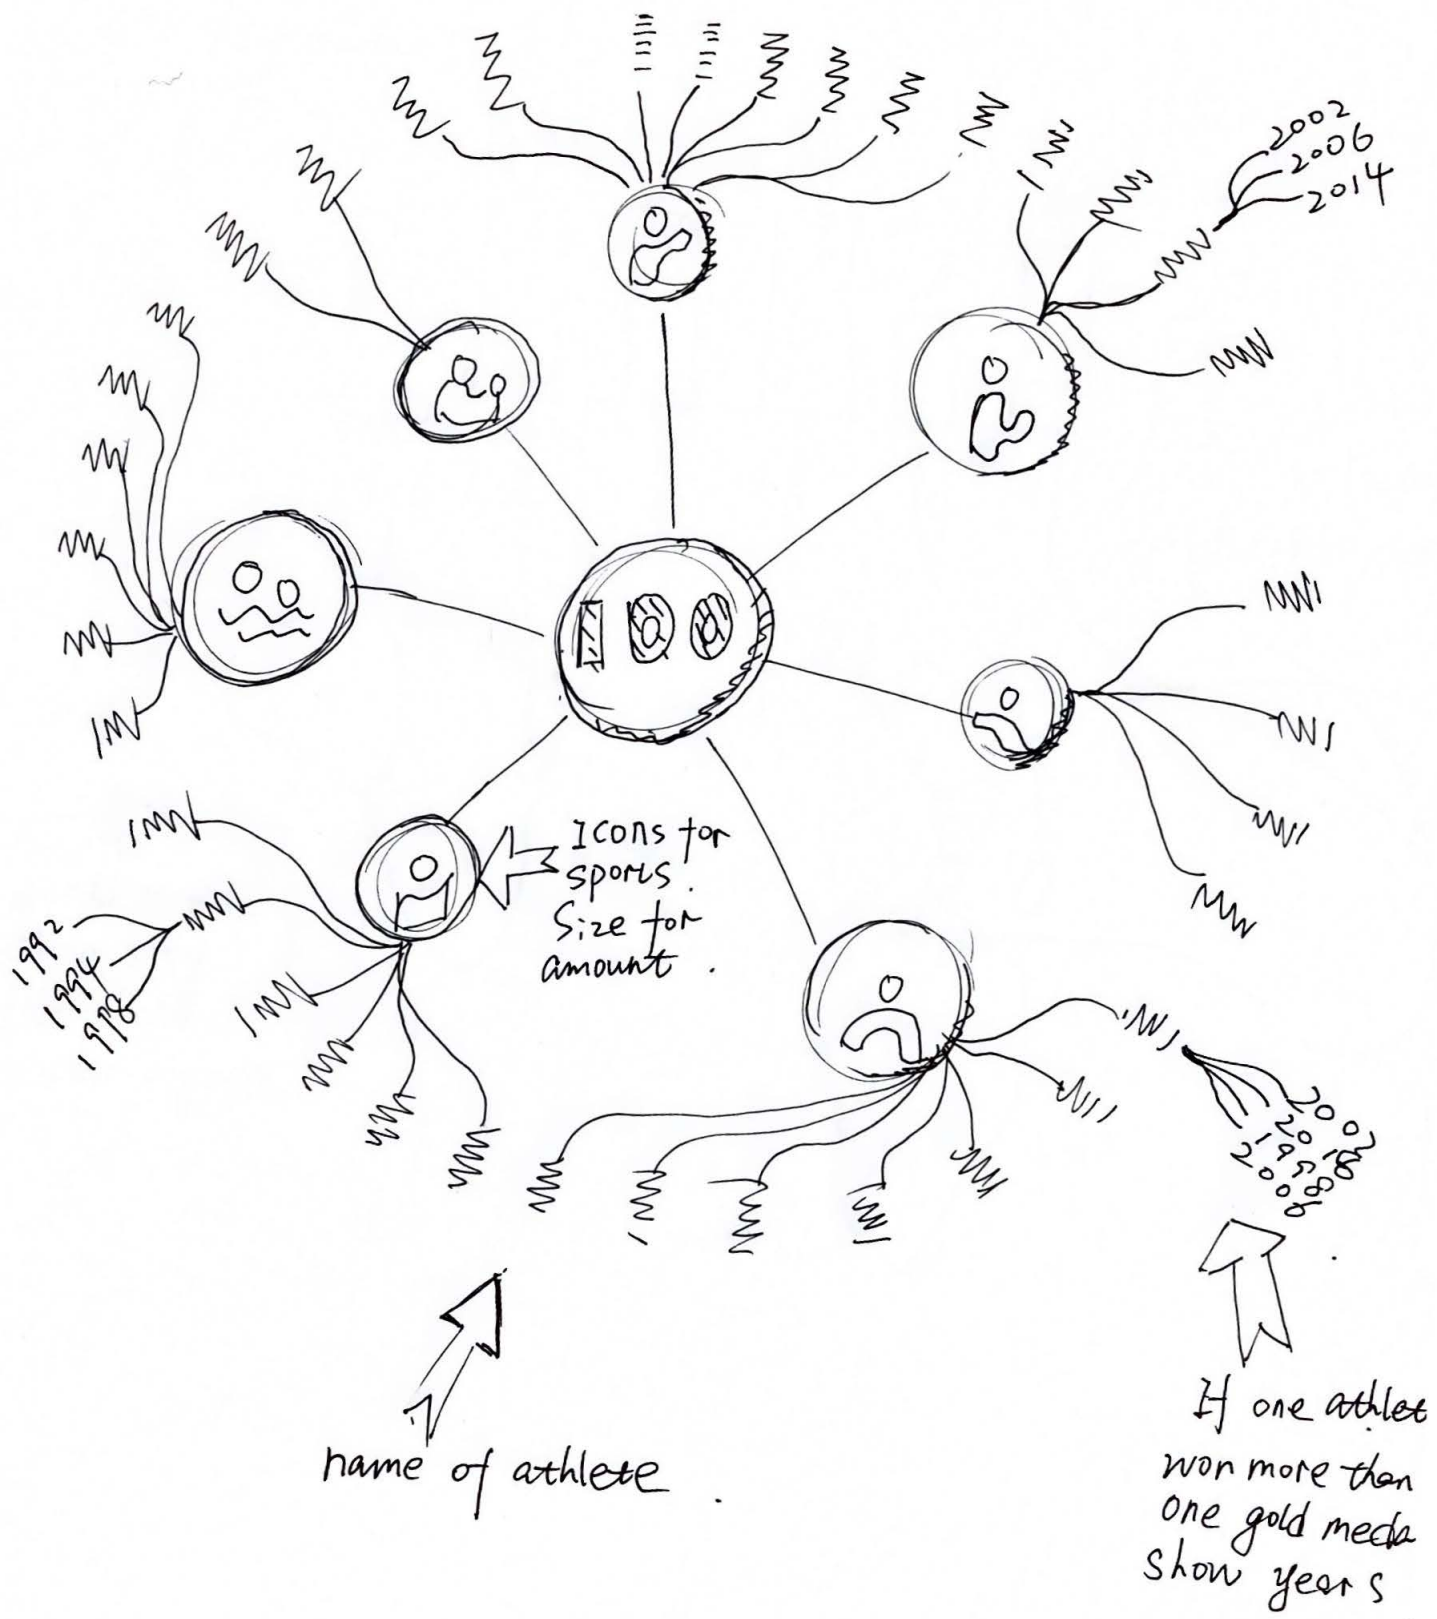 2002
2006
2014
100
Icons for
sports.
Size for
amount.
1992
1994
1998
2002
2018
1998
2006
name of athlete.
If one athlet
won more than
one gold meda
show years